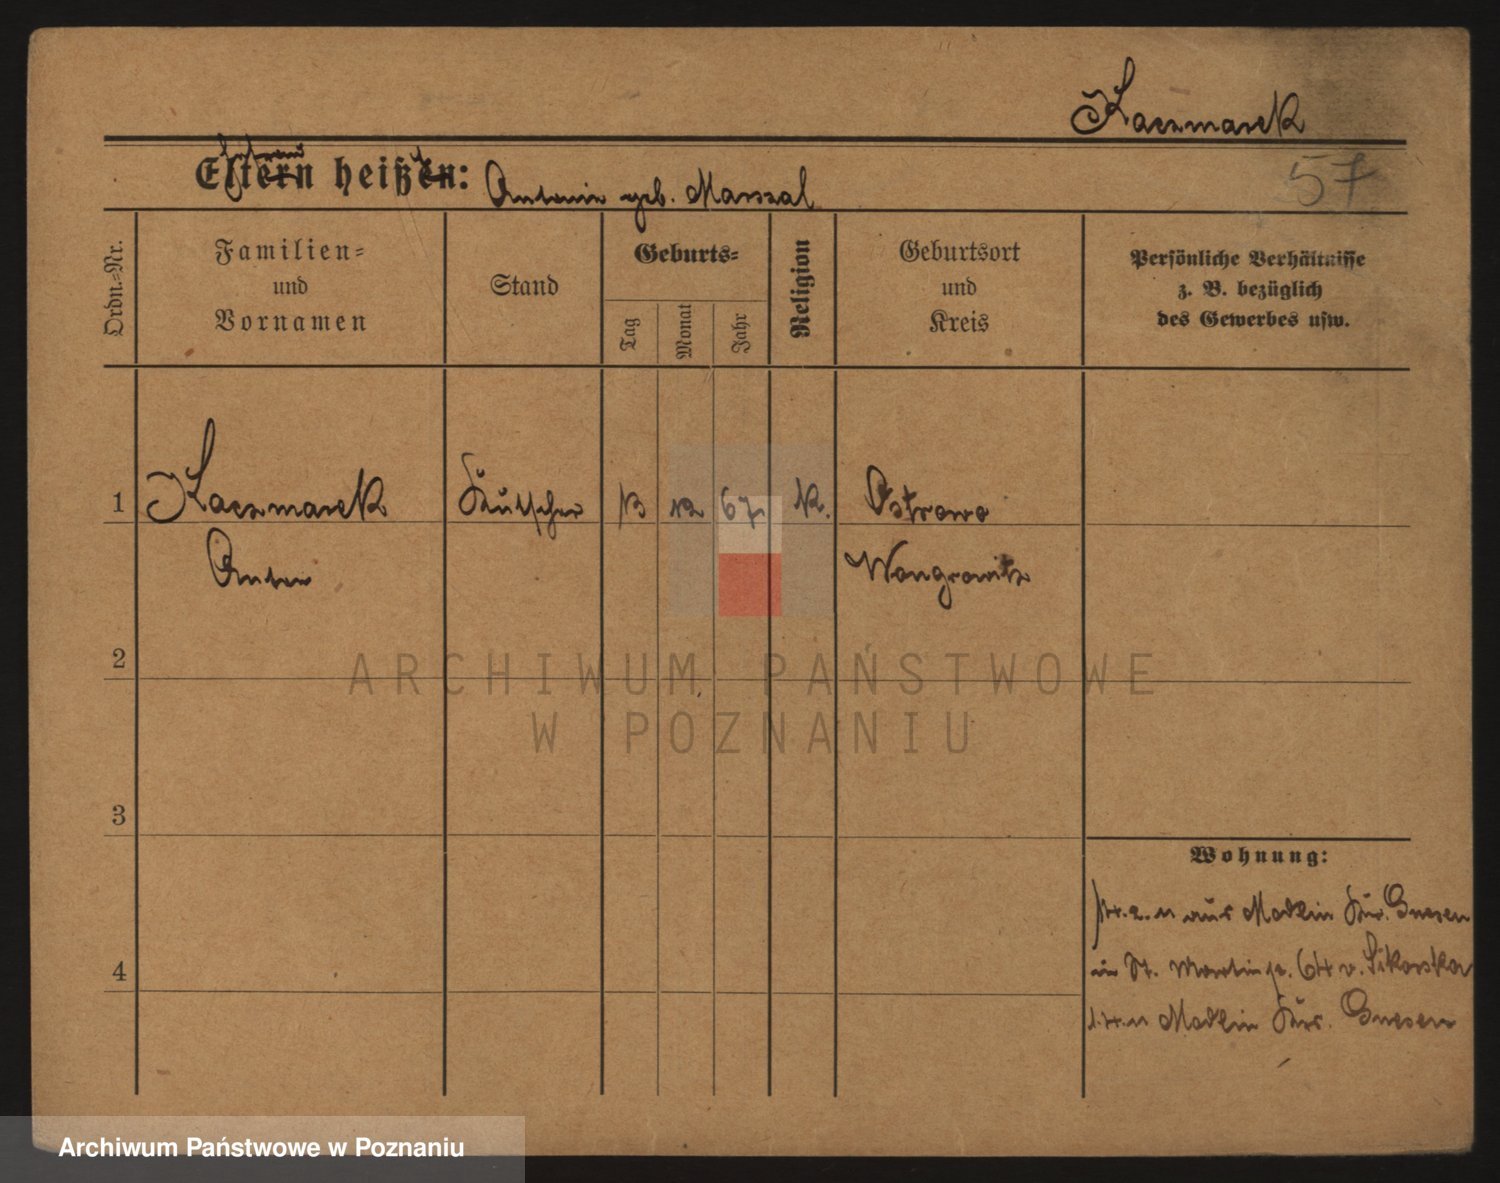 Kaczmarek
Eltern heißen: Antonie geb. Marszal
57
Ordn.=Nr.
Familien=
und
Vornamen
Stand
Geburts=
Tag
Monat
Jahr
Religion
Geburtsort
und
Kreis
Persönliche Verhältnisse
z. B. bezüglich
des Gewerbes usw.
1 Kaczmarek Kutscher 13 12 67 K. Ostrowo
Anton Wongrowitz
2
ARCHIWUM PAŃSTWOWE
W POZNANIU
3
Wohnung:
aus Modlin Kr. Gnesen
4
in St. Martinstr. 64 v. Sikorska
Modlin Krs. Gnesen
Archiwum Państwowe w Poznaniu